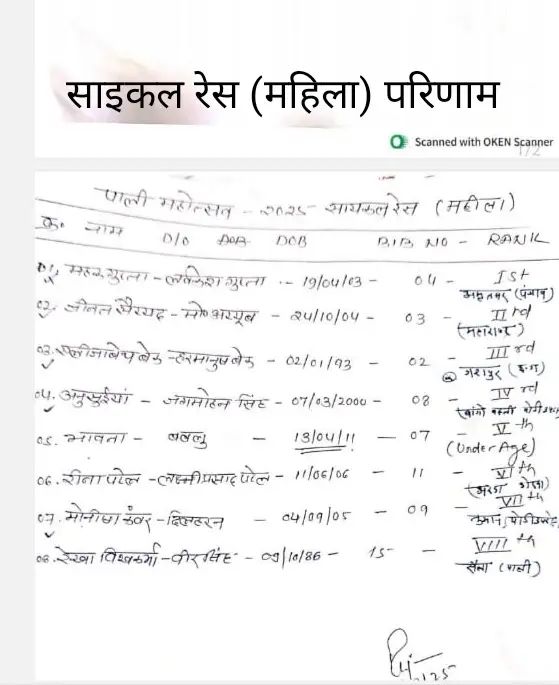 साइकल रेस (महिला) परिणाम
Scanned with OKEN Scanner
1/2
पाली महोत्सव - २०२५ सायकल रेस (महीला)
क्र. नाम D/O DOB BIB NO - RANK
01, महक गुप्ता - लोकेश गुप्ता - 19/04/03 - 04 - Ist
अमृतसर (पंजाब)
02, जीनत सैय्यद - मो० अय्यूब - 24/10/04 - 03 - II rd
(महाराष्ट्र)
03. एलीजाबेथ बेक - हरमानुष बेक - 02/01/93 - 02 - III rd
जशपुर (छ.ग)
04. अनुसुईयां - जगमोहन सिंह - 07/03/2000 - 08 - IV rd
05. भावना - बबलु - 13/04/11 - 07 - V th
(Under Age)
06. रीना पटेल - लक्ष्मीप्रसाद पटेल - 11/06/06 - 11 - VI th
07. मोनीषा कंवर - - 04/09/05 - 09 - VII th
08. रेखा विश्वकर्मा - वीर सिंह - 09/10/86 - 15 - VIII th
(पाली)